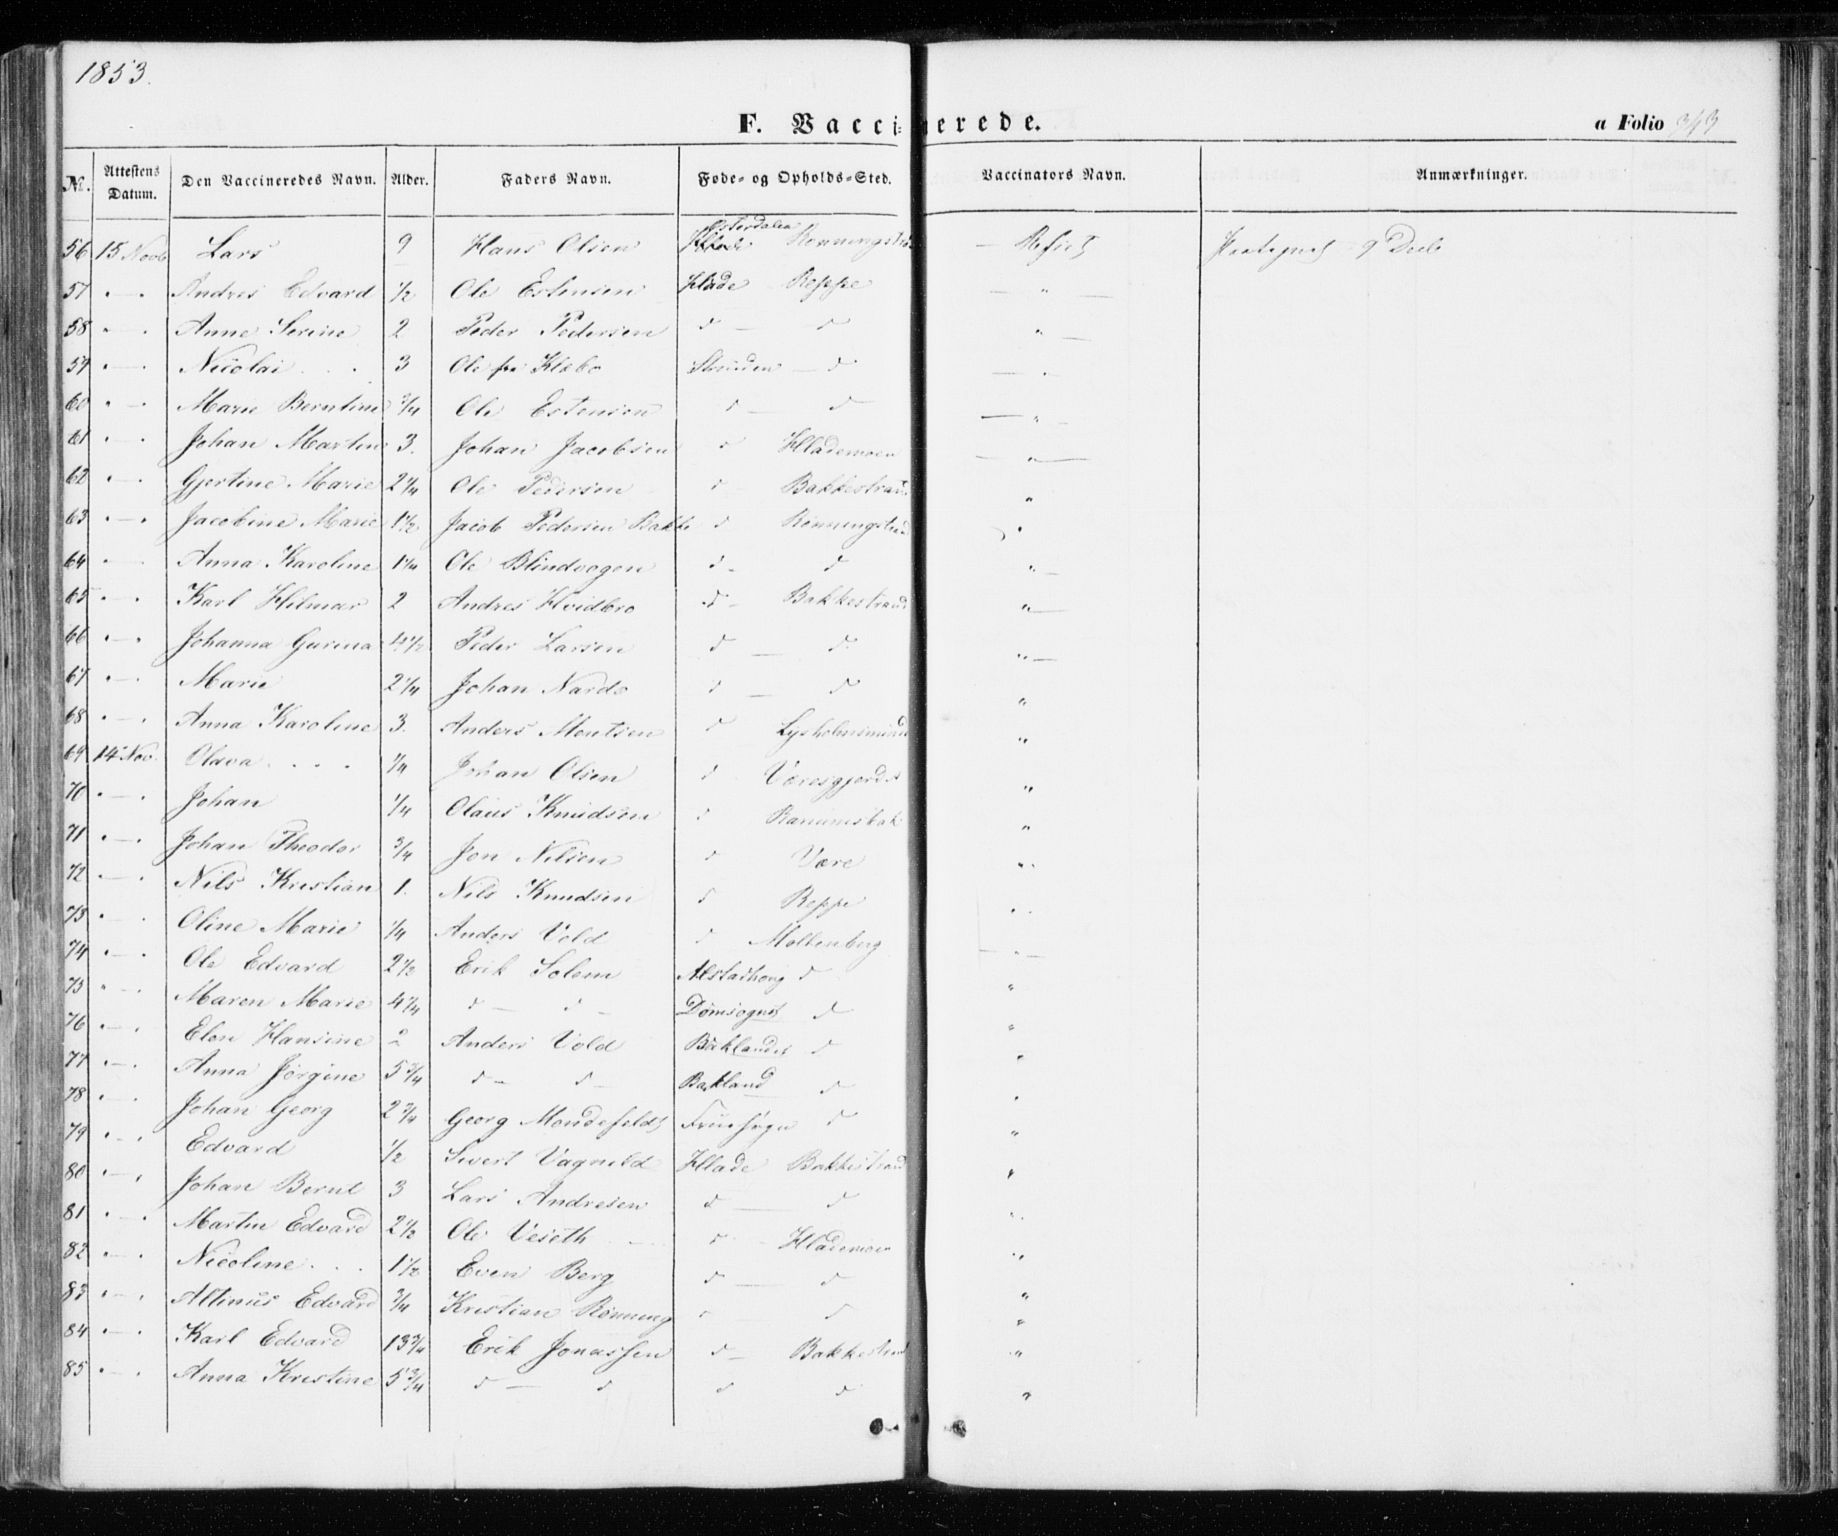 1853.
F. Vaccinerede. a Folio 343
No. Attestens Datum. Den Vaccineredes Navn. Alder. Faders Navn. Føde- og Opholds-Sted. Vaccinators Navn. Anmærkninger.
56 15 Novb Lars 9 Hans Olsen Østerdalen Rønningstra —
57 " — " Andres Edvard 1/2 Ole Estensen Hlade Reppe — " —
58 " — " Anne Serine 2 Peder Pedersen d — d " —
59 " — " Nicolai . . . 3 Ole fra Klæbo Strinden — d — "
60 " — " Marie Berntine 3/4 Ole Estensen d — d — " —
61 " — " Johan Martin 3. Johan Jacobsen d Hlademoen — " —
62 " — " Gjertine Marie 2 1/4 Ole Pedersen d Bakkestrand "
63 " — " Jacobine Marie 1 1/2 Jacob Pedersen Bakke d Rønningstrad "
64 " — Anna Karoline 1 1/4 Ole Blindvogen d — d " —
65 " — " Karl Hilmar 2 Andres Hvidbro d — Bakkestrand " —
66 " — " Johanna Gurina 4 1/2 Peder Larsen d — d " —
67 " — " Marie 2 1/4 Johan Nardo d — d "
68 " — " Anna Karoline 3. Anders Mentsen d "
69 14 Nov. Olava . . . . 1/4 Johan Olsen d Væresgjerdet "
70 " — " Johan 1/4 Olaus Knudsen d "
71 " — " Johan Theodor 3/4 Jon Nilsen d Være "
72 " — " Nils Kristian 1. Nils Knudsen d Reppe "
73 " — " Oline Marie 1/4 Anders Vold d Moltenberg — " —
74 " — " Ole Edvard 2 1/2 Erik Solem Alstadhoug d "
75 " — " Maren Marie 4 1/4 d — d — Domsognet d "
76 " — " Elen Hansine 2 Anders Vold Baklandet d "
77 " — " Anna Jørgine 5 3/4 d — d — Bakland d "
78 " — " Johan Georg 2 3/4 Georg Mondefeldt d "
79 " — " Edvard 1/2 Sivert Vagnild Hlade Bakkestrand "
80 " — " Johan Bernt 3 Lars Andresen d — d "
81 " — " Martin Edvard 2 1/2 Ole Veseth d Hlademoen "
82 " — " Nicoline . . . 1 1/2 Even Berg d — d "
83 " — " Altinus Edvard 3/4 Kristian Rønning d — d "
84 " — " Karl Edvard 13 3/4 Erik Jonassen d — Bakkestrand "
85 " — " Anna Kristine 5 3/4 d — d d d "